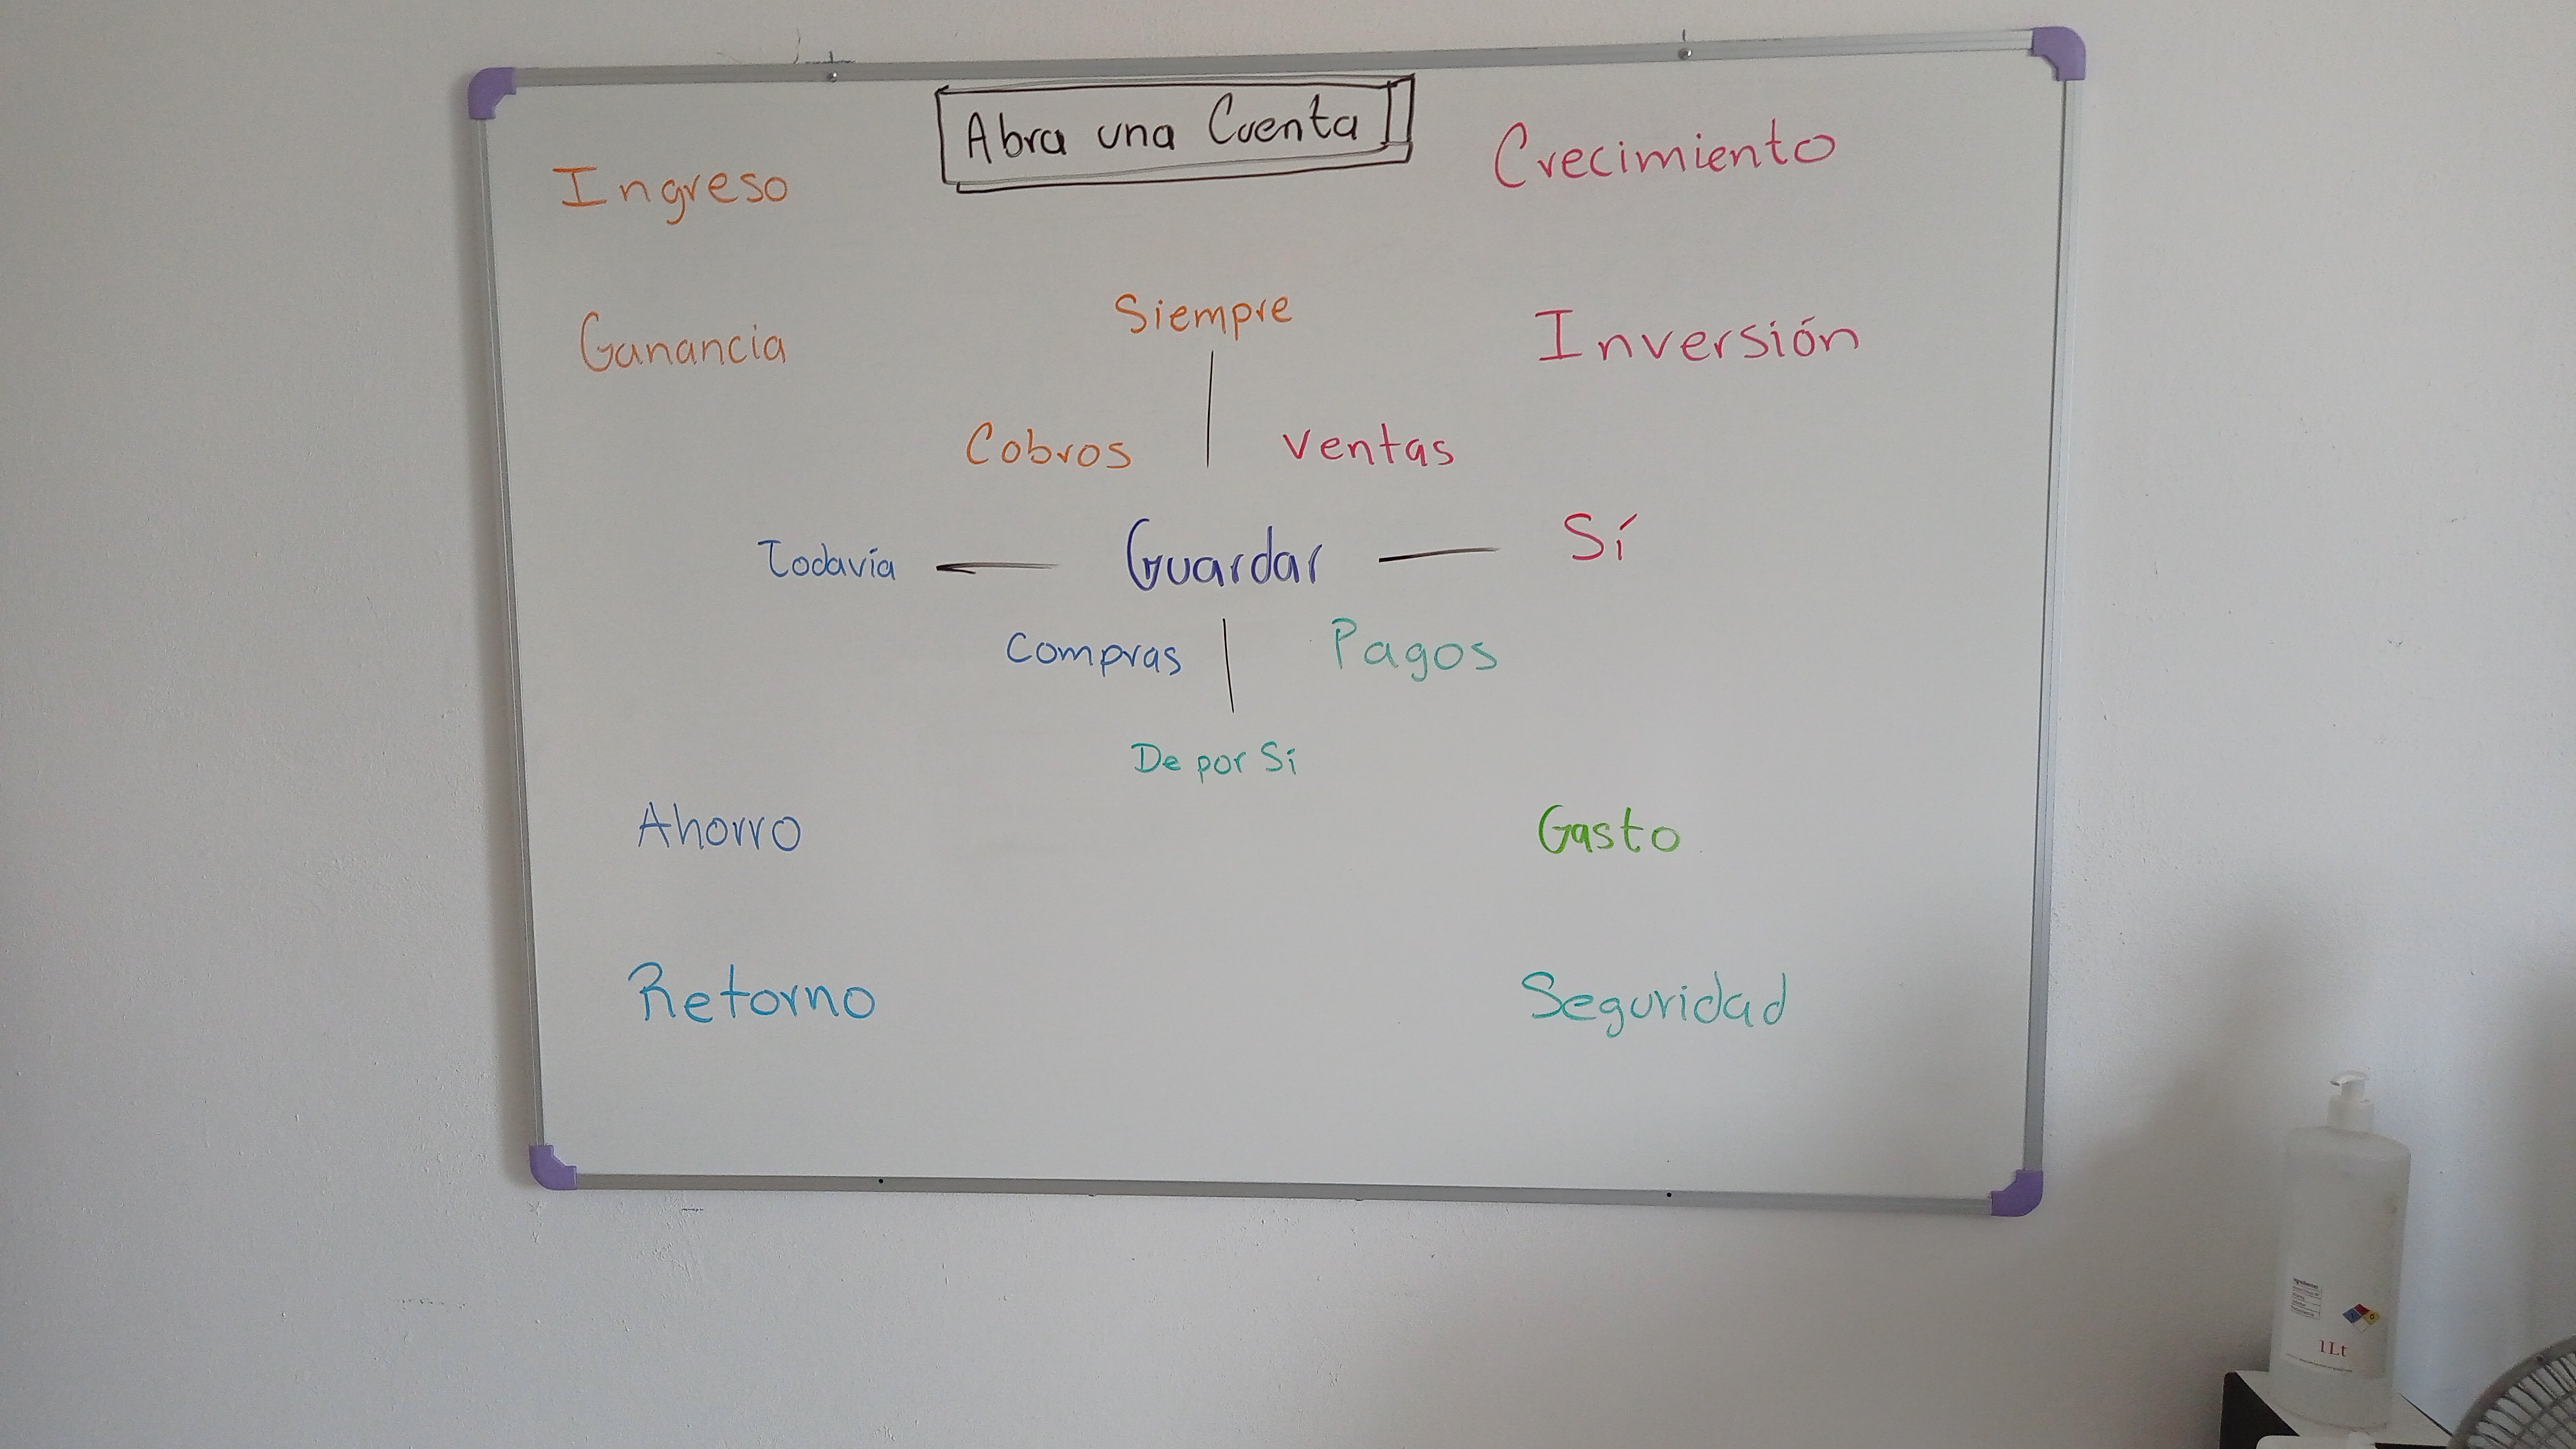 Abra una Cuenta
Ingreso
Crecimiento
Ganancia
Siempre
Inversión
Cobros
Ventas
Todavía
Guardar
Sí
Compras
Pagos
De por Sí
Ahorro
Gasto
Retorno
Seguridad
1Lt